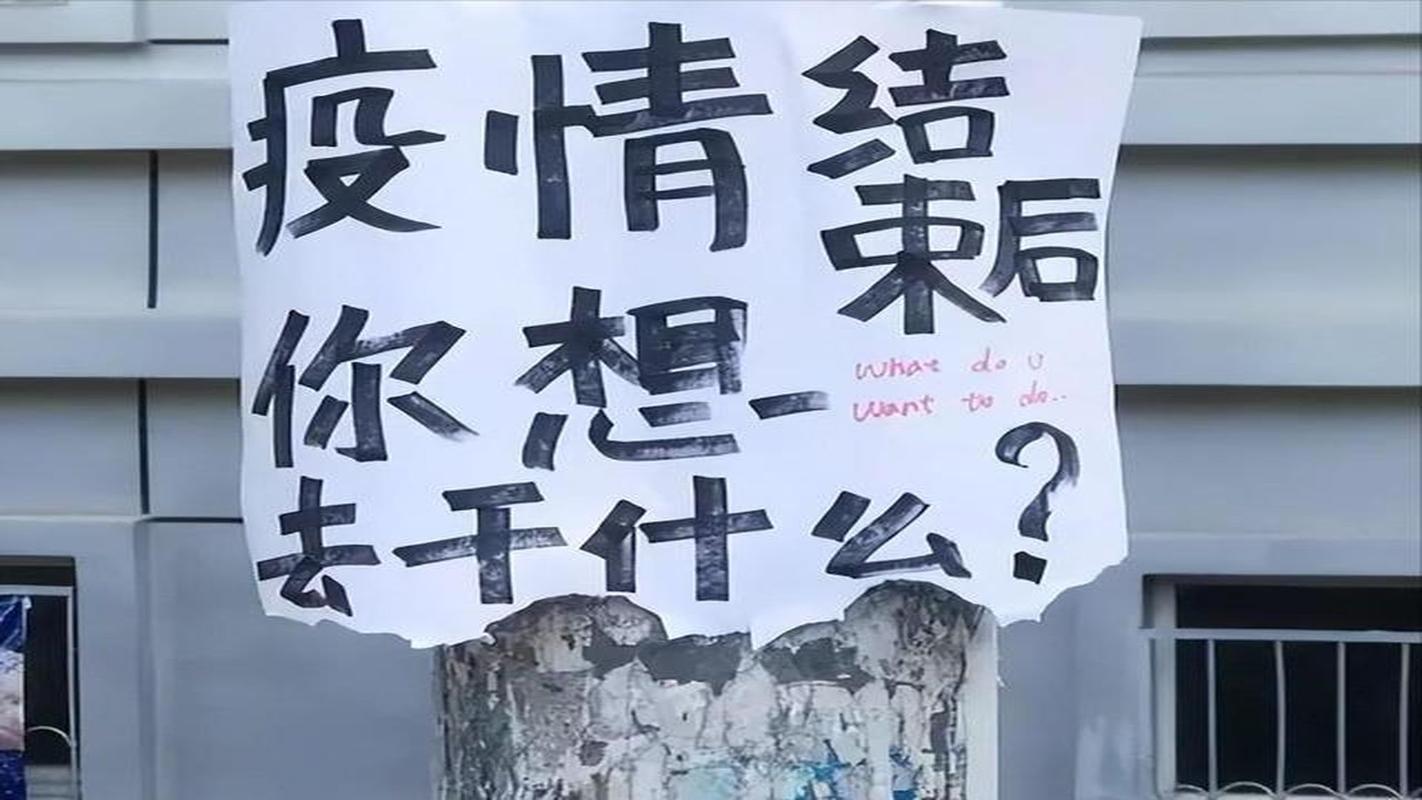 疫情结束后
你想
what do u
want to do..
去干什么?